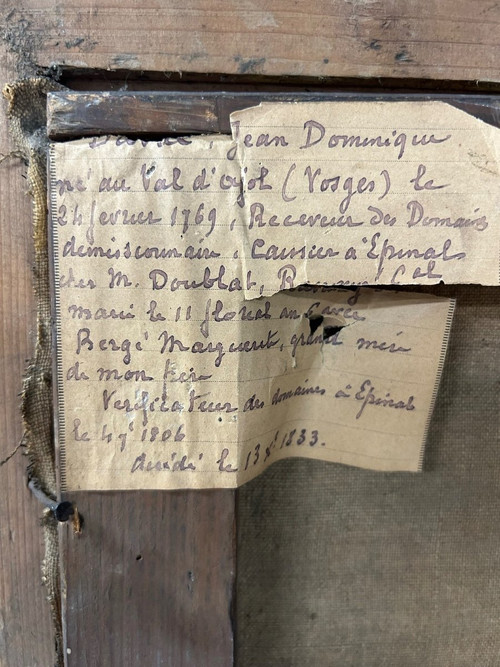 Jean Dominique
né au Val d'ajol (Vosges) le
24 fevrier 1769, Receveur des Domaines
demissionnaire, Caissier à Epinal
chez M. Doublat,
marié le 11 floreal an
Bergé Marguerite, grand mère
de mon
Verificateur des domaines à Epinal
le 1806
décédé le 13 1833.